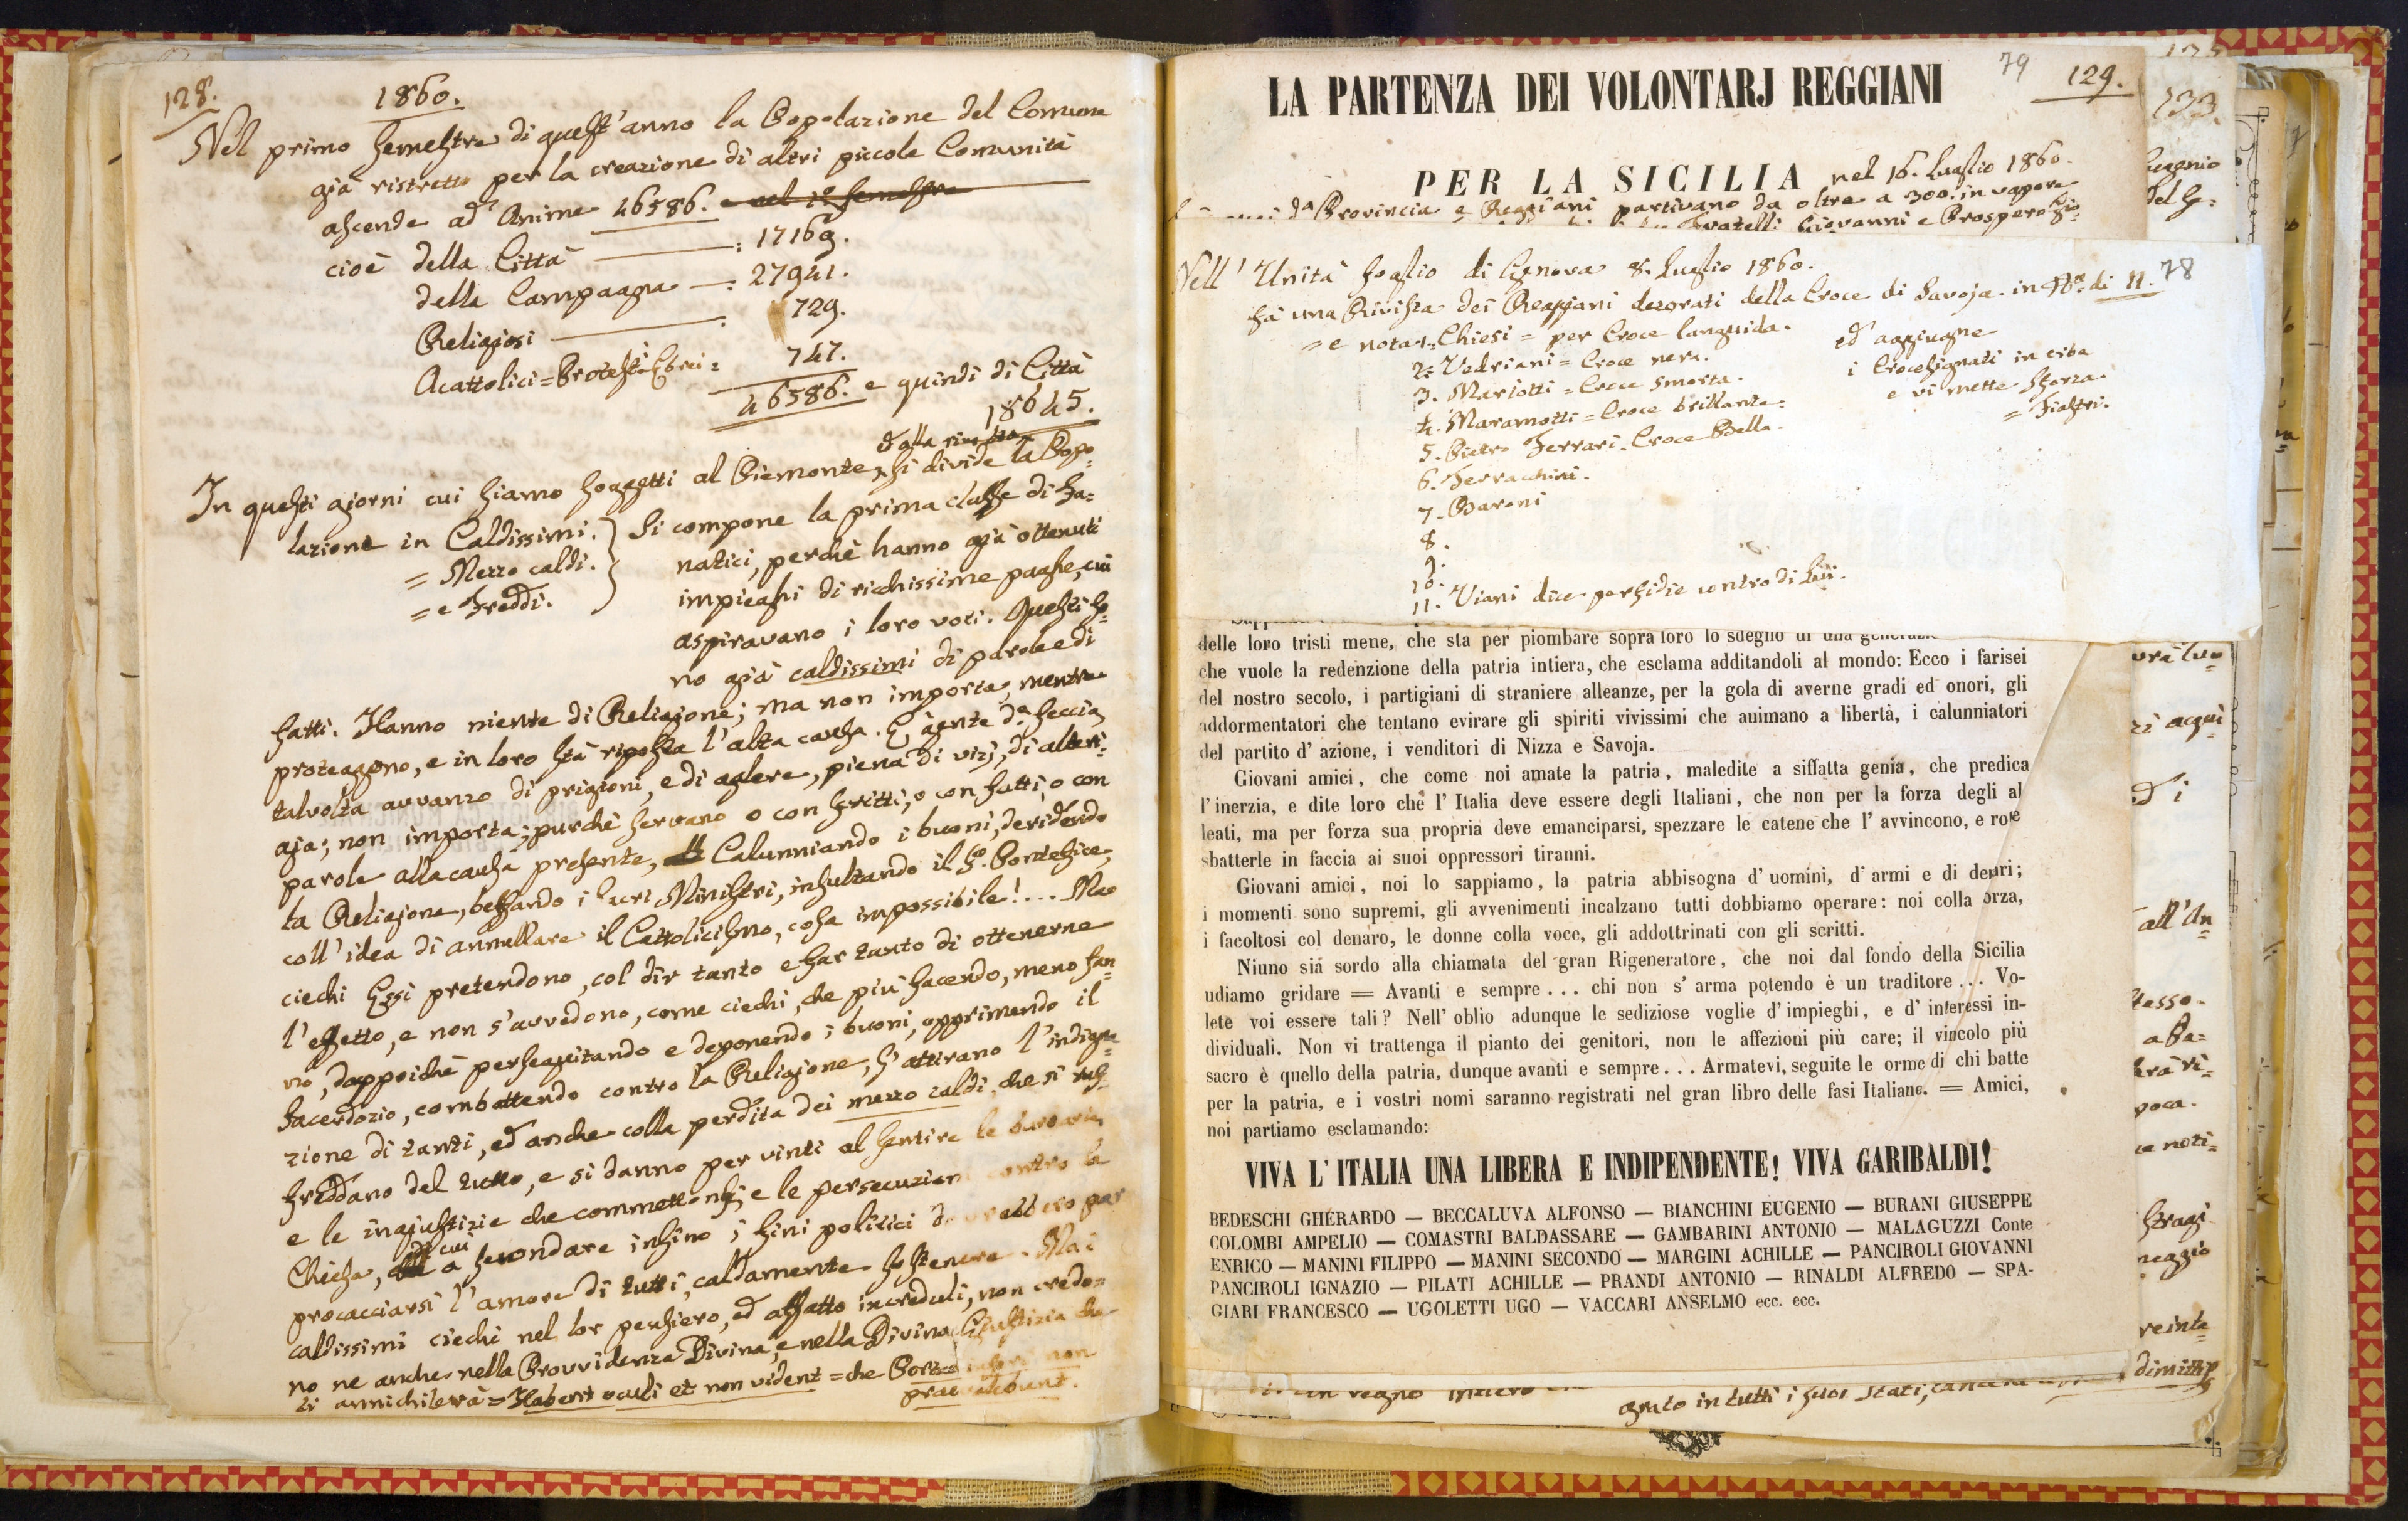 128.
1860.
Nel primo Semestre di quest'anno la Popolazione del Comune
già ristretto per la creazione di altri piccole Comunità
ascende ad Anime 46586. e nel 2º Semestre
cioè della Città : 17169.
della Campagna : 27941.
Religiosi : 729.
Acattolici = Protesti Ebrei : 747.
46586. e quindi di Città
18645.
In questi giorni cui siamo soggetti al Piemonte, si divide la Popo=
lazione in Caldissimi.
= Mezzo caldi.
= e Freddi.
Si compone la prima classe di fa=
natici, perchè hanno già ottenuti
impieghi di ricchissime paghe, cui
aspiravano i loro voti. Questi so=
no già caldissimi di parole e di
fatti. Hanno niente di Religione; ma non importa, mentre
proteggono, e in loro stà riposta l'alta causa. È gente da feccia,
talvolta avvanzo di prigioni, e di galere, piena di vizj, di alteri=
gia; non importa; purchè servano o con scritti, o con fatti, o con
parole alla causa presente, Calunniando i buoni, deridendo
la Religione, beffando i sacri Ministri, insultando il So. Pontefice,
coll'idea di annullare il Cattolicismo, cosa impossibile!.... Ma
ciechi Essi pretendono, col dir tanto e far tanto di ottenerne
l'effetto, e non s'avvedono, come ciechi, che più facendo, meno fan=
no, dappoichè perseguitando e deponendo i buoni, opprimendo il
Sacerdozio, combattendo contro la Religione, s'attirano l'indigna=
zione di tanti, ed anche colla perdita dei mezzo caldi, che si raf=
freddano del tutto, e si danno per vinti al sentire le barbarie,
e le ingiustizie che commettonsi, e le persecuzioni contro la
Chiesa, di cui a secondare insino i fini politici dovrebbero per
procacciarsi l'amore di tutti, caldamente sostenere. Ma i
caldissimi ciechi nel lor pensiero, ed affatto increduli, non credo=
no ne anche nella Provvidenza Divina, e nella Divina Giustizia che
li annichilerà = Habent oculi et non vident = che Portae inferi non
praevalebunt.
LA PARTENZA DEI VOLONTARJ REGGIANI
79
129.
PER LA SICILIA nel 16. Luglio 1860.
da Provincia e Reggiani partivano da oltre a 300. in vapore
Fratelli Giovanni e Prospero
Nell' Unità foglio di Genova 8. Luglio 1860.
78
fà una Rivista dei Reggiani decorati della Croce di Savoja. in No. di 11.
= e nota 1. Chiesi = per Croce languida.
2. Vedriani = Croce nera.
3. Mariotti = Croce smorta.
4. Maramotti = Croce brillante.
5. Pietro Ferrari. Croce Bella.
6. Ferracchini.
7. Baroni
8.
9.
10.
11. Viani dice perfidie contro di Lui.
ed aggiugne
i Crocesignati in erba
e vi mette Sforza.
= Fiastri.
delle loro tristi mene, che sta per piombare sopra loro lo sdegno di una
che vuole la redenzione della patria intiera, che esclama additandoli al mondo: Ecco i farisei
del nostro secolo, i partigiani di straniere alleanze, per la gola di averne gradi ed onori, gli
addormentatori che tentano evirare gli spiriti vivissimi che animano a libertà, i calunniatori
del partito d' azione, i venditori di Nizza e Savoja.
Giovani amici, che come noi amate la patria, maledite a siffatta genìa, che predica
l'inerzia, e dite loro che l' Italia deve essere degli Italiani, che non per la forza degli al
leati, ma per forza sua propria deve emanciparsi, spezzare le catene che l' avvincono, e rote
sbatterle in faccia ai suoi oppressori tiranni.
Giovani amici, noi lo sappiamo, la patria abbisogna d' uomini, d' armi e di denri;
i momenti sono supremi, gli avvenimenti incalzano tutti dobbiamo operare: noi colla orza,
i facoltosi col denaro, le donne colla voce, gli addottrinati con gli scritti.
Niuno sia sordo alla chiamata del gran Rigeneratore, che noi dal fondo della Sicilia
udiamo gridare = Avanti e sempre . . . chi non s' arma potendo è un traditore . . . Vo-
lete voi essere tali? Nell' oblio adunque le sediziose voglie d' impieghi, e d' interessi in-
dividuali. Non vi trattenga il pianto dei genitori, non le affezioni più care; il vincolo più
sacro è quello della patria, dunque avanti e sempre . . . Armatevi, seguite le orme di chi batte
per la patria, e i vostri nomi saranno registrati nel gran libro delle fasi Italiane. = Amici,
noi partiamo esclamando:
VIVA L' ITALIA UNA LIBERA E INDIPENDENTE! VIVA GARIBALDI!
BEDESCHI GHERARDO — BECCALUVA ALFONSO — BIANCHINI EUGENIO — BURANI GIUSEPPE
COLOMBI AMPELIO — COMASTRI BALDASSARE — GAMBARINI ANTONIO — MALAGUZZI Conte
ENRICO — MANINI FILIPPO — MANINI SECONDO — MARGINI ACHILLE — PANCIROLI GIOVANNI
PANCIROLI IGNAZIO — PILATI ACHILLE — PRANDI ANTONIO — RINALDI ALFREDO — SPA-
GIARI FRANCESCO — UGOLETTI UGO — VACCARI ANSELMO ecc. ecc.
in regno intiero
in tutti i suoi Stati,
133.
del Ge:
acqui
ed i
all'An
tesso.
poca.
noti=
Stragi